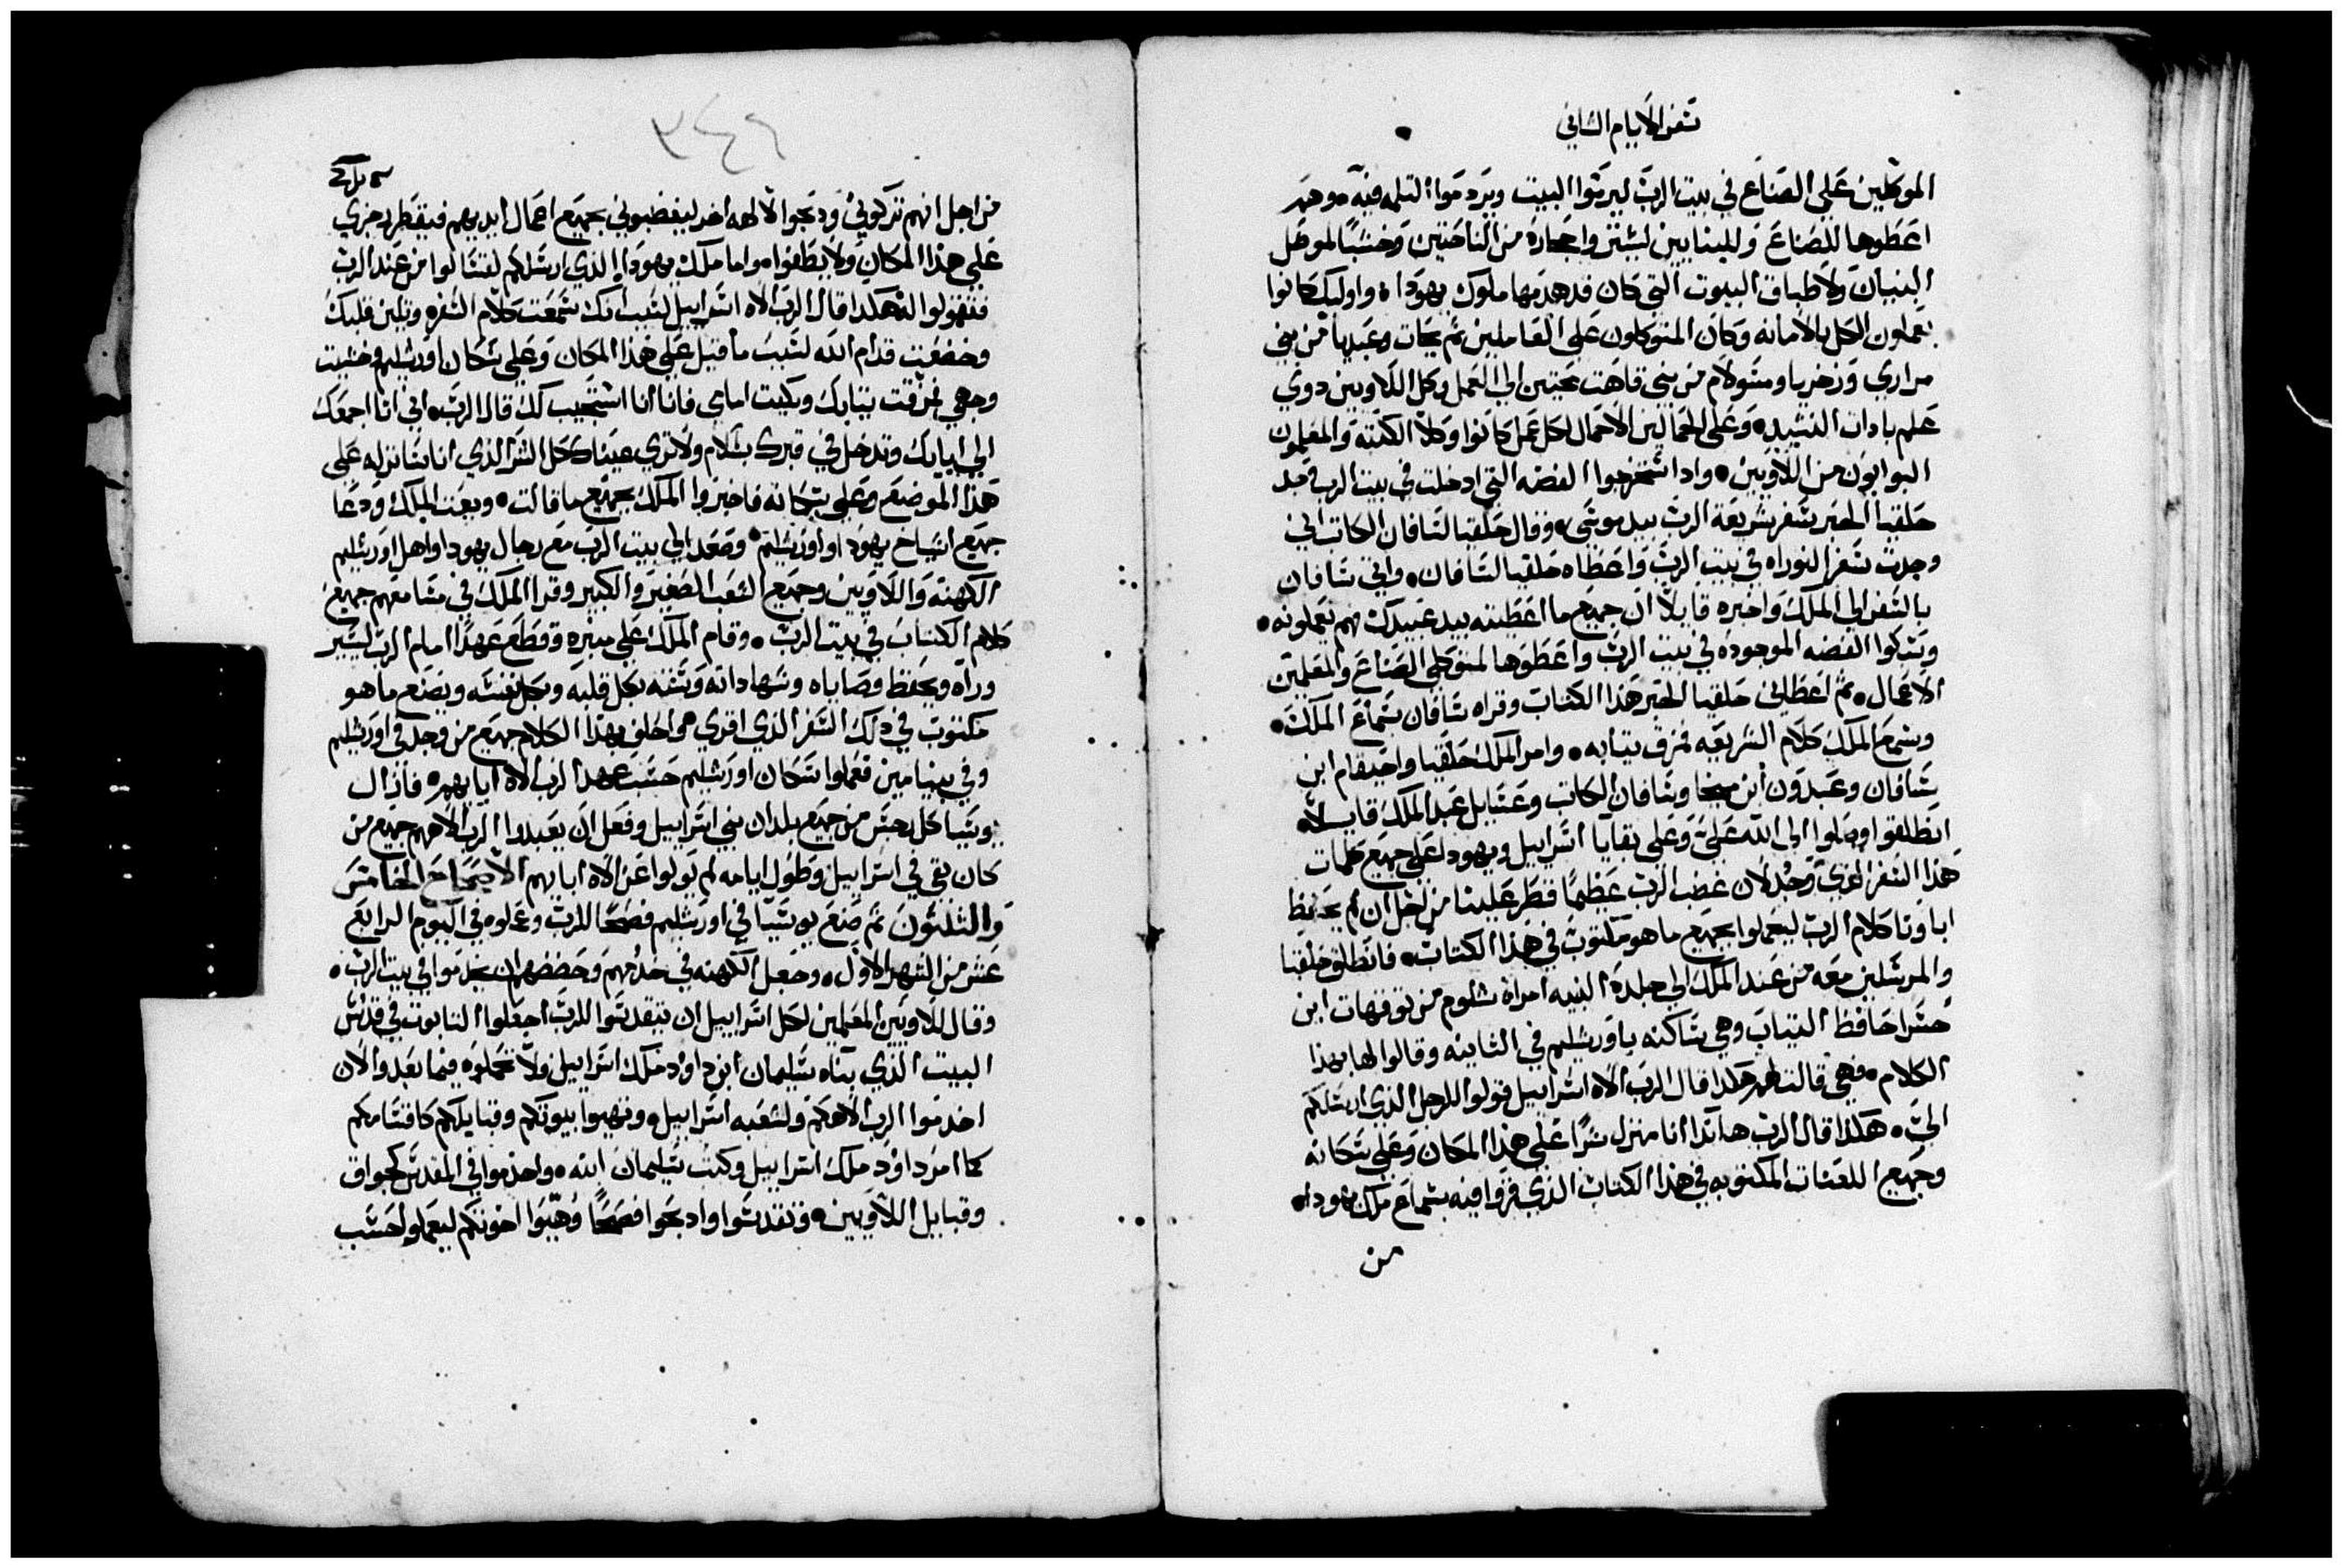 سفر الايام الثاني
الموكلين على الصناع في بيت الرب ليرمّوا البيت ويردموا الثلمه فيه وهم
اعطوها للصناع وللبنايين ليشتروا حجاره من الناحتين وخشبًا لموصل
البنيان ولاطباق البيوت التي كان قد هدمها ملوك يهوداه واوليك كانوا
يعملون الكل بالامانه وكان المتوكلون على العاملين ثم يحات وعبديا من بني
مراري وزخريا ومشولام من بني قاهت محتين الي العمل وكل اللاويين ذوي
علم بادات النشيد وعلى الحمالين الاحمال لكل عمل كانوا وكلا الكتبة والمعلمون
البوابون من اللاويين واذ استخرجوا الفضه التي ادخلت في بيت الرب وجد
حلقيا الحبر سفر شريعة الرب بيد موسى وقال حلقيا لشافان الكاتب اني
وجدت سفر التوراه في بيت الرب واعطاه حلقيا لشافان واتى شافان
بالسفر الى الملك واخبره قايلًا ان جميع ما اعطيته بيد عبيدك هم يعملونه
وسبكوا الفضه الموجوده في بيت الرب واعطوها لمتوكلي الصناع والمعلمين
الاعمال ثم اعطاني حلقيا الحبر هذا الكتاب وقراه شافان بسماع الملك
وسمع الملك كلام الشريعه فمزق ثيابه وامر الملك حلقيا واخيقام ابن
شافان وعبدون ابن ميخا وشافان الكاتب وعسايل عبد الملك قايلًا
انطلقوا وصلوا الى الله عليّ وعلى بقايا اسراييل ويهودا على جميع كلمات
هذا السفر الذي وجد لان غضب الرب عظيمًا قطر علينا من اجل ان لم يحفظ
اباونا كلام الرب ليعملوا بجميع ما هو مكتوب في هذا الكتاب فانطلق حلقيا
والمرسلين معه من عند الملك الى جلدة النبيه امراة شلوم من توقهات ابن
حسرا حافظ الثياب وهي ساكنه باورشليم في الثانيه وقالوا لها بهذا
الكلام فهي قالت لهم هكذا قال الرب الاه اسراييل قولوا للرجل الذي ارسلكم
اليّ هكذا قال الرب هاندا انا منزل شرًا على هذا المكان وعلى سكانه
وجميع اللعنات المكتوبه في هذا الكتاب الذي قروا فيه بسماع ملك يهوداه
من
٣٤٦
من اجل انهم تركوني وذبحوا لالهه اخر ليغضبوني بجميع اعمال ايديهم فيقطر رجزي
على هذا المكان ولا يطفواه واما ملك يهودا الذي ارسلكم لتسالوا من عند الرب
فتقولوا له هكذا قال الرب الاه اسراييل لسبب انك سمعت كلام السفر ولين قلبك
وخضعت قدام الله لسبب ما قيل على هذا المكان وعلى سكان اورشليم وخشيت
وجهي فمزقت ثيابك وبكيت امامي فانا انا استجيب لك قال الرب اني انا اجمعك
الى ابايك وتدخل في قبرك بسلام ولا ترى عيناك كل الشر الذي انا سانزله على
هذا الموضع وعلى سكانه فاخبروا الملك بجميع ما قالت وبعت الملك ودعا
جميع اشياخ يهودا واورشليم وصعد الى بيت الرب مع رجال يهودا واهل اورشليم
الكهنة واللاويين وجميع الشعب الصغير والكبير وقرا الملك في مسامعهم جميع
كلام الكتاب في بيت الرب وقام الملك على منبره وقطع عهدًا امام الرب ليسير
وراه ويحفظ وصاياه وشهاداته وسننه بكل قلبه وبكل نفسه ويصنع ما هو
مكتوب في ذلك السفر الذي اقري هو احلف بهذا الكلام جميع من وجد في اورشليم
وفي بنيامين فعملوا سكان اورشليم حسب عهد الرب الاه ابايهم فازال
يوشيا كل رجس من جميع بلدان بني اسراييل وفعل ان يعبدوا الرب الاههم جميع من
كان بقي في اسراييل وطول ايامه لم يولوا عن الاه ابايهم الاصحاح الخامس
والثلثون ثم صنع يوشيا في اورشليم فصحًا للرب وعملوه في اليوم الرابع
عشر من الشهر الاول وجعل الكهنه في خدمهم وحضضهم ان يخدموا في بيت الرب
وقال للاويين المعلمين لكل اسراييل ان تتقدسوا للرب اجعلوا التابوت في قدس
البيت الذي بناه سليمان ابن داود ملك اسراييل ولا تحملوه فيما بعد والان
اخدموا الرب الاهكم ولشعبه اسراييل وتهيوا بيوتكم وقبايلكم كاقسامكم
كما امر داوود ملك اسراييل وكتب سليمان ابنه واخدموا في المقدس كجواق
وقبايل اللاويين وتقدسوا واذبحوا فصحًا وهيّوا اخوتكم ليعملوا حسب